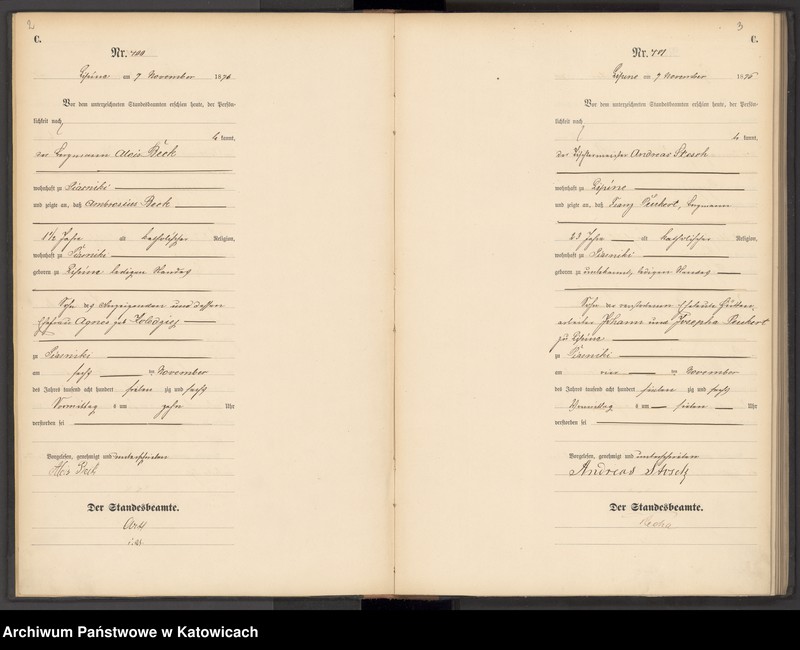 2
C.
Nr. 400
Lipine am 7 November 1876
Vor dem unterzeichneten Standesbeamten erschien heute, der Persön-
lichkeit nach
kannt,
der Bergmann Alois Beck
wohnhaft zu Piasniki
und zeigte an, daß Ambrosius Beck
1 1/2 Jahr alt katholischer Religion,
wohnhaft zu Piasniki
geboren zu Lipine ledigen Standes
Sohn des Anzeigenden und dessen
Ehefrau Agnes geb
zu Piasniki
am sechs ten November
des Jahres tausend acht hundert sieben zig und sechs
Vormittag s um zehn Uhr
verstorben sei
Vorgelesen, genehmigt und unterschrieben
Beck
Der Standesbeamte.
3
C.
Nr. 401
Lipine am 7 November 1876
Vor dem unterzeichneten Standesbeamten erschien heute, der Persön-
lichkeit nach
kannt,
der Tischlermeister Andreas Stosch
wohnhaft zu Lipine
und zeigte an, daß Franz Bergmann
23 Jahr alt katholischer Religion,
wohnhaft zu Piasniki
geboren zu unbekannt, ledigen Standes
Sohn der verstorbenen Eheleute Hütten-
arbeiter Johann und Josepha
zu Lipine
zu Piasniki
am vier ten November
des Jahres tausend acht hundert sieben zig und sechs
mittag s um sieben Uhr
verstorben sei
Vorgelesen, genehmigt und unterschrieben
Andreas Stosch
Der Standesbeamte.
Archiwum Państwowe w Katowicach